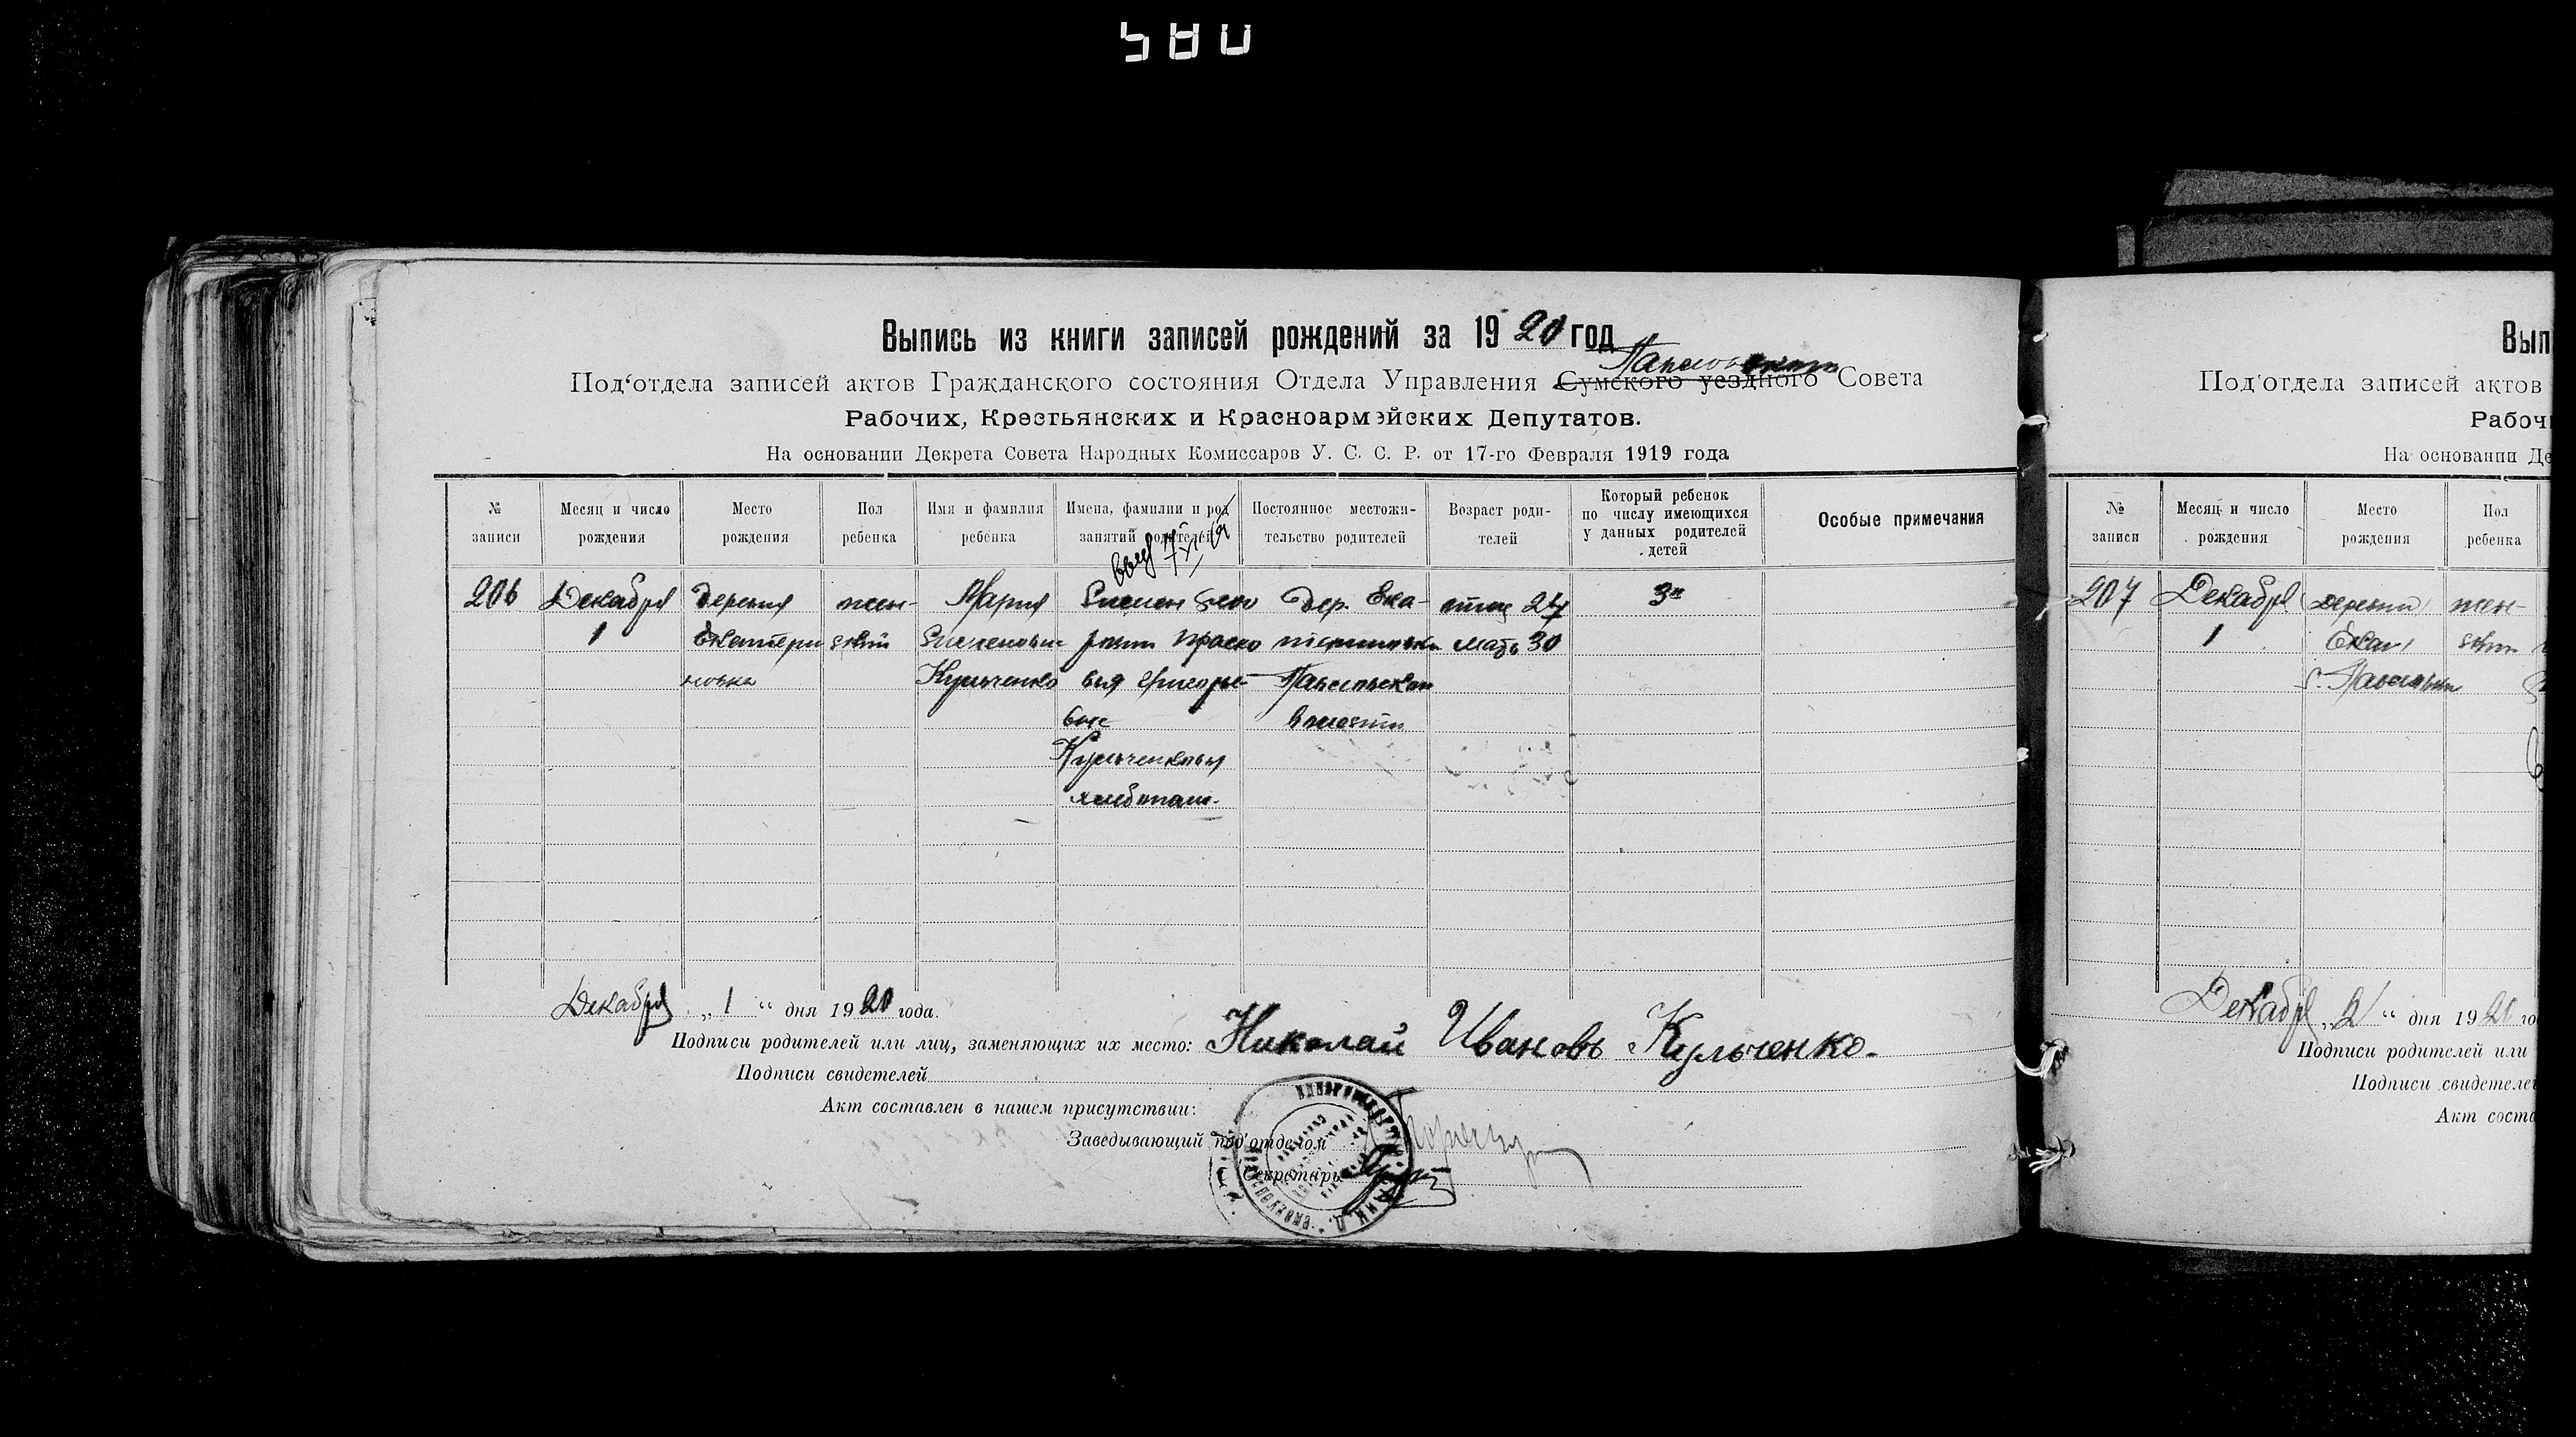 580
Выпись из книги записей рождений за 1920 год
Под‘отдела записей актов Гражданского состояния Отдела Управления Сумского уездного Совета
Рабочих, Крестьянских и Красноармэйских Депутатов.
На основании Декрета Совета Народных Комиссаров У. С. С. Р. от 17-го Февраля 1919 года
№ записи
Месяц и число рождения
Место рождения
Пол ребенка
Имя и фамилия ребенка
Имена, фамилии и род занятий родителей
Постоянное местожительство родителей
Возраст родителей
Который ребенок по числу имеющихся у данных родителей детей
Особые примечания
206
Декабря
1
деревня
Екатери
новка
жен-
ский
Мария
Кульченко
Дер. Ека-
Павловской
волости
отец 27
мать 30
3й
вья Григорье-
Кульченковы
хлебопаш-
Декабря „1“ дня 1920 года.
Подписи родителей или лиц, заменяющих их место: Николай Ивановъ Кульченко.
Подписи свидетелей
Акт составлен в нашем присутствии:
Заведывающий под‘отделом
Секретарь
Вып
Под‘отдела записей актов
Рабочи
На основании Де
№ записи
Месяц и число рождения
Место рождения
Пол ребенка
207
Декабря
1
деревни
жен-
Декабря „2“ дня 1920 го
Подписи родителей или
Подписи свидетелей
Акт соста